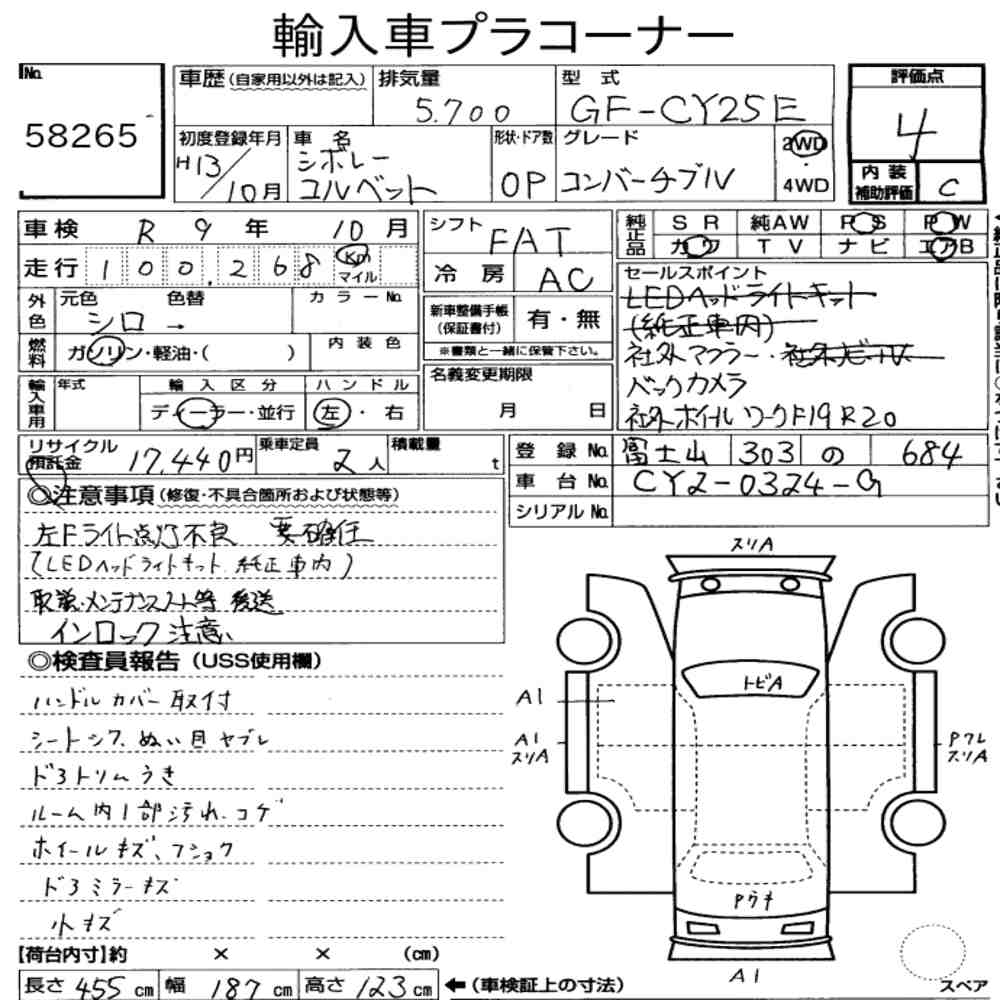 輸入車プラコーナー
No.
58265
車歴(自家用以外は記入)
排気量
5.700
型式
GF-CY25E
初度登録年月
H13/10月
車名
シボレー
コルベット
形状・ドア数
OP
グレード
コンバーチブルV
2WD
・
4WD
評価点
4
内装
補助評価
C
車検 R 9年 10月
走行 100,268 Km マイル
外色
元色 色替
シロ →
カラーNo.
燃料
ガソリン・軽油・( )
内装色
輸入車用
年式
輸入区分
ディーラー・並行
ハンドル
左・右
シフト
FAT
冷房
AC
新車整備手帳
(保証書付)
有・無
※書類と一緒に保管下さい。
名義変更期限
月 日
純正品
SR 純AW PS PW
カワ TV ナビ エアB
セールスポイント
LEDヘッドライトキット
(純正車内)
社外マフラー・社外ビルV
バックカメラ
社外ホイル ワークF19 R20
リサイクル
預託金
17,440円
乗車定員
2人
積載量
t
登録No. 富士山 303 の 684
車台No. CY2-0324-G
シリアルNo.
◎注意事項(修復・不具合箇所および状態等)
左Fライト点灯不良 要確任
(LEDヘッドライトキット 純正車内)
取説・メンテナンスノート等 後送
インロック注意
◎検査員報告(USS使用欄)
ハンドルカバー取付
シートシワ、ぬい目ヤブレ
ドアトリムうき
ルーム内1部汚れ、コゲ
ホイールキズ、フショク
ドアミラーキズ
小キズ
【荷台内寸】約 × × (cm)
長さ 455 cm 幅 187 cm 高さ 123 cm
←(車検証上の寸法)
スリA
トビA
A1
A1
スリA
Pワレ
スリA
Pウキ
A1
スペア